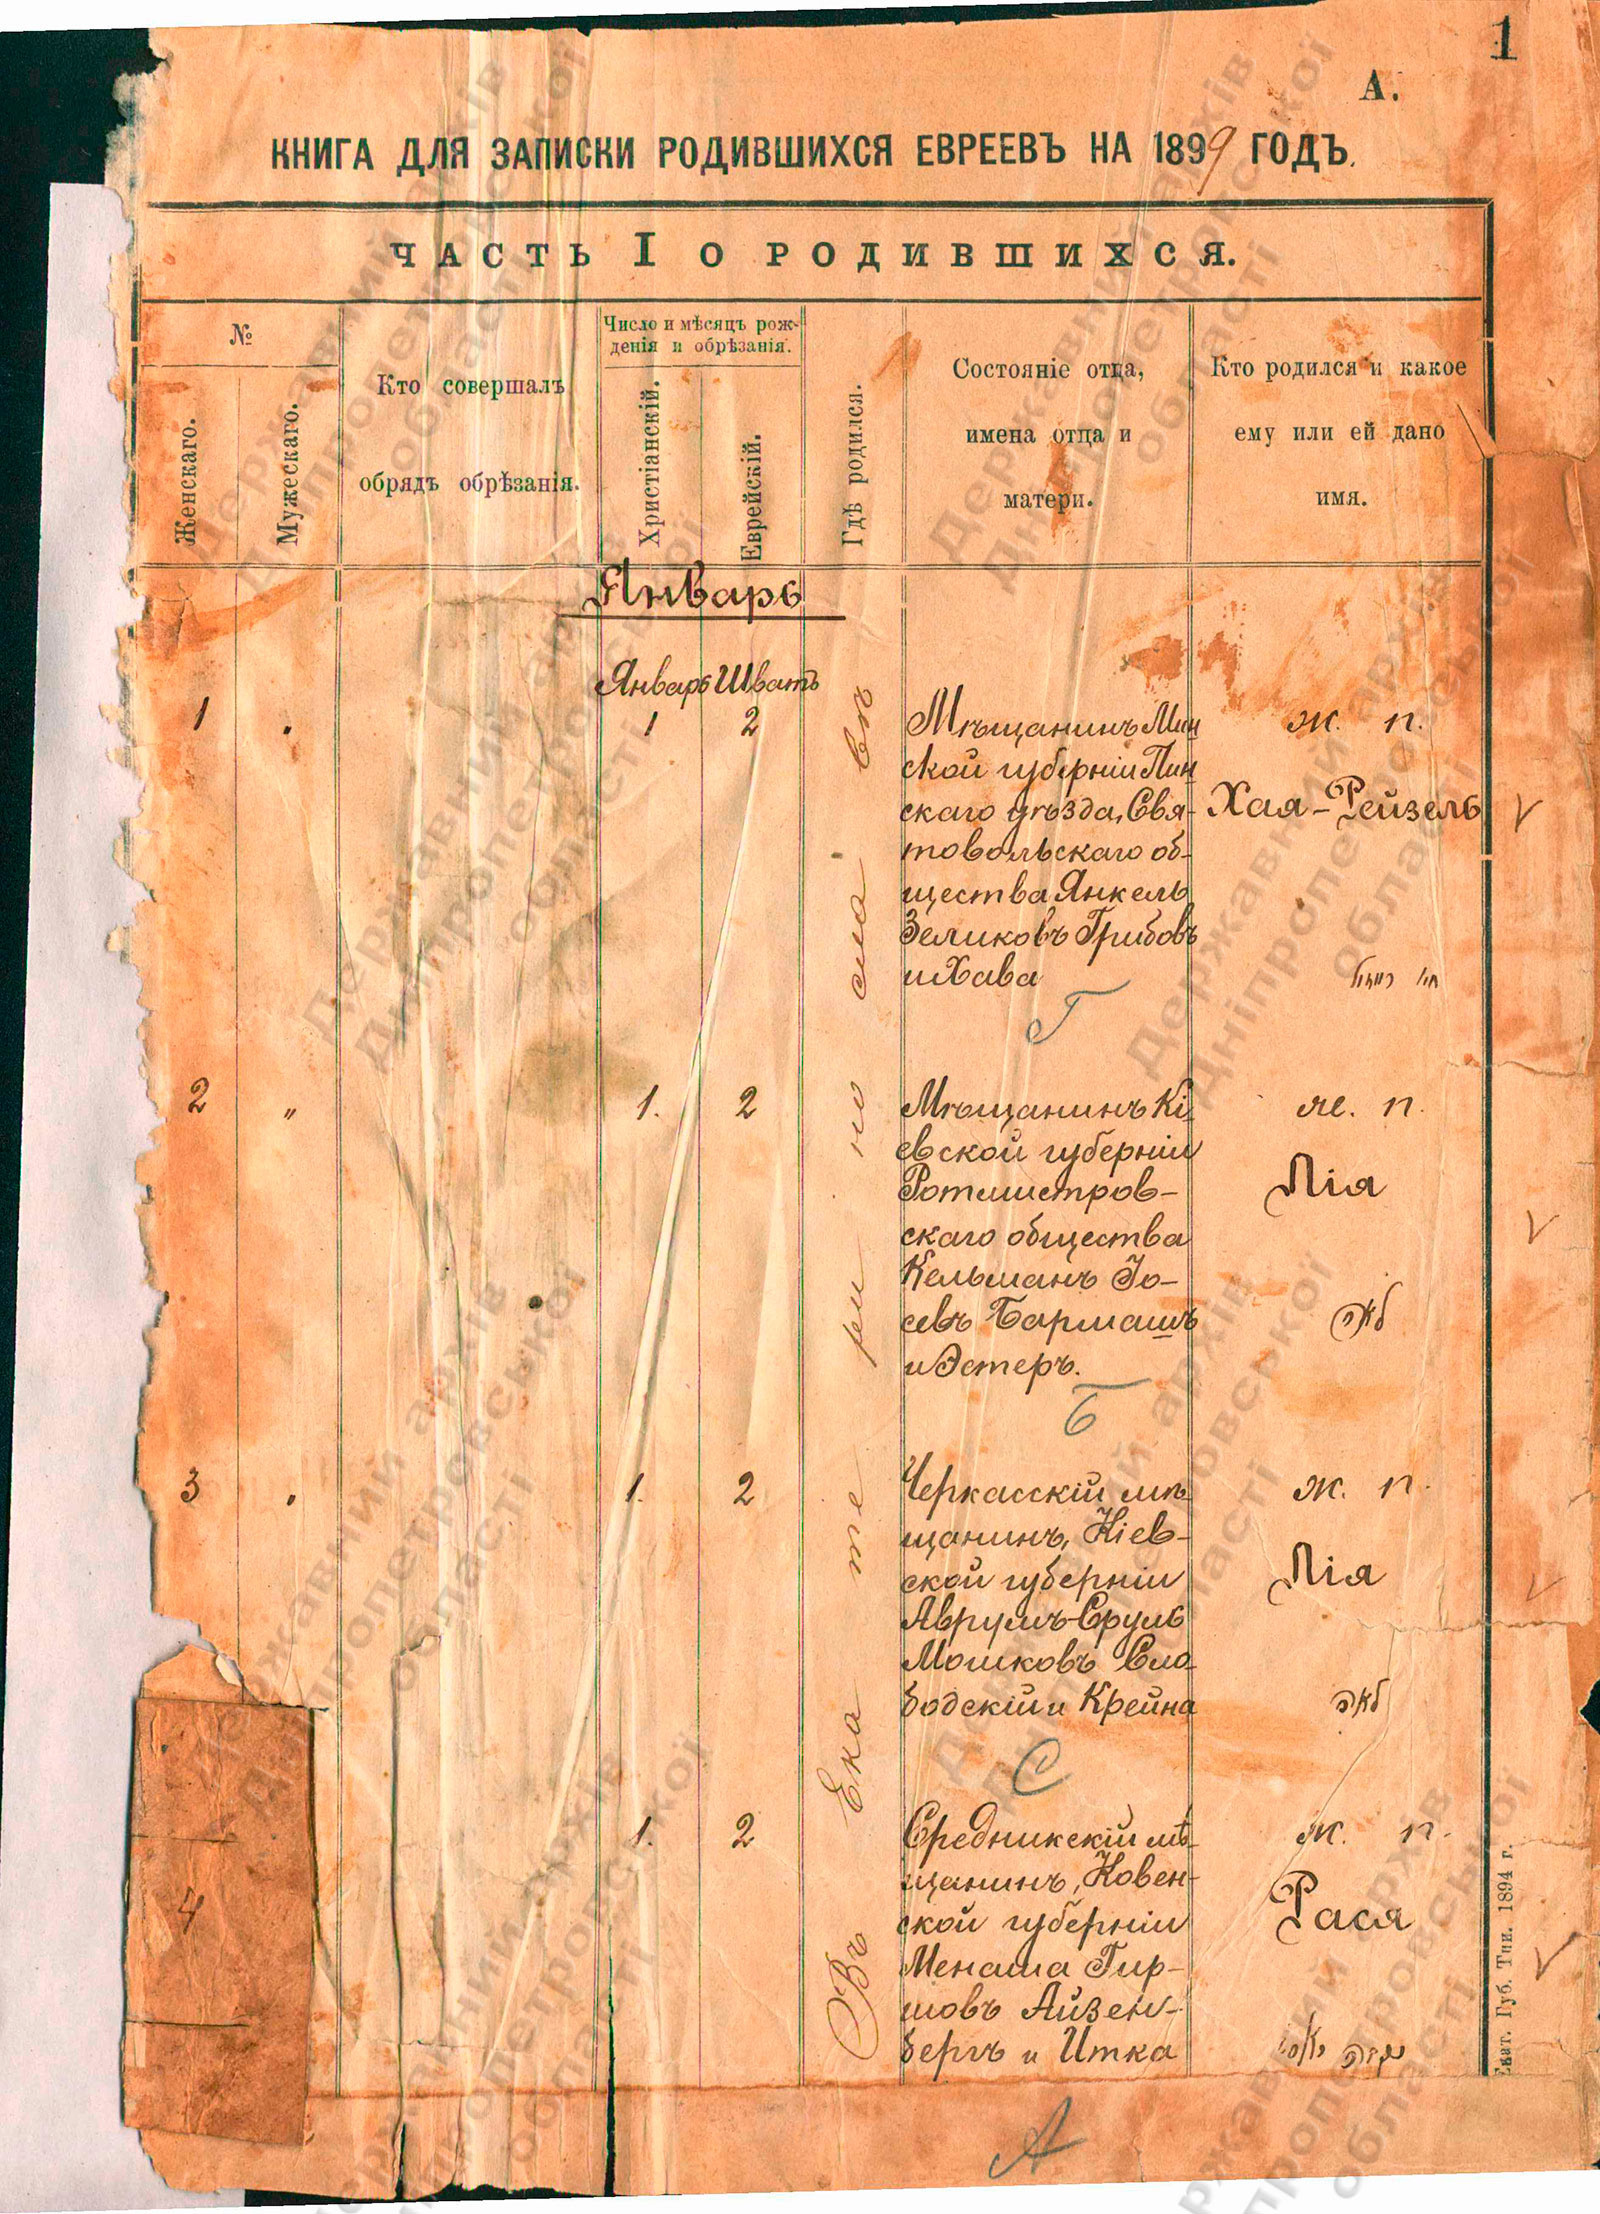 1
А.
КНИГА ДЛЯ ЗАПИСКИ РОДИВШИХСЯ ЕВРЕЕВЪ НА 1899 ГОДЪ.
ЧАСТЬ I О РОДИВШИХСЯ.
№
Женскаго.
Мужескаго.
Кто совершалъ
обрядъ обрѣзанія.
Число и мѣсяцъ рож-
денія и обрѣзанія.
Христіанскій.
Еврейскій.
Гдѣ родился.
Состояніе отца,
имена отца и
матери.
Кто родился и какое
ему или ей дано
имя.
Январь
Январь Шватъ
Въ Екатеринославѣ
1 " 1 2
Мѣщанинъ Мин
ской губерніи Пин
скаго уѣзда, Свя-
товольскаго об-
щества Янкель
Зеликовъ Грибовъ
и Хава
Г
ж. п.
Хая-Рейзель
חיה רייזיל
2 " 1. 2
Мѣщанинъ Кі
евской губерніи
Ротмистров-
скаго общества
Кельманъ Іо-
севъ Бармашъ
и Эстеръ.
Б
ж. п.
Лія
לאה
3 " 1. 2
Черкасскій мѣ
щанинъ, Кіев-
ской губерніи
Аврумъ-Сруль
Мошковъ Сло
бодскій и Крейна
С
ж. п.
Лія
לאה
4 1. 2
Средникскій мѣ-
щанинъ, Ковен-
ской губерніи
Менаша Гир-
шовъ Айзен-
бергъ и Итка
А
ж. п.
Рася
Екат. Губ. Тип. 1894 г.
Державний архів
Дніпропетровської
області